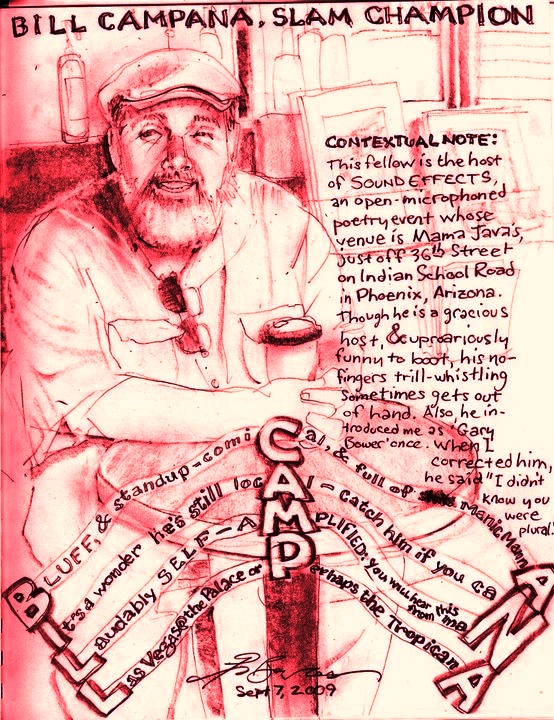 BILL CAMPANA, SLAM CHAMPION
CONTEXTUAL NOTE:
This fellow is the host
of SOUND EFFECTS,
an open-microphoned
poetry event whose
venue is Mama Java's,
just off 36th Street
on Indian School Road
in Phoenix, Arizona.
Though he is a gracious
host, & uproariously
funny to boot, his no-
fingers trill-whistling
sometimes gets out
of hand. Also, he in-
troduced me as "Gary
Bower" once. When I
corrected him,
he said "I didn't
know you
were
plural!"
BLUFF, & standup-comiCal, & full of Manic MannA
It's a wonder he's still locAl – catch him if you caN
Laudably SELF-AMPLIFIED: You will hear this from me
Las Vegas @ the Palace or Perhaps the TropicanA
Sept 7, 2009